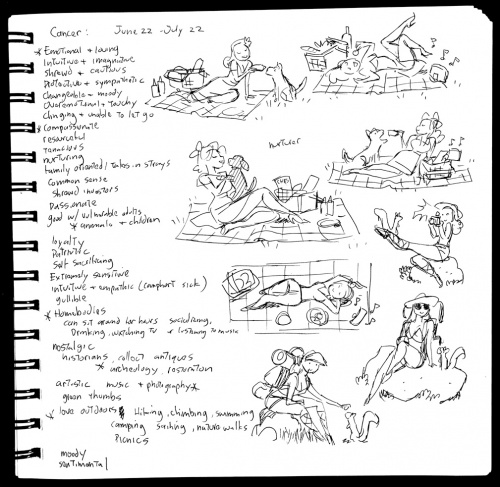 Cancer: June 22 - July 22
* Emotional + loving
Intuitive + imaginative
shrewd + cautious
protective + sympathetic
changeable + moody
overemotional + touchy
clinging + unable to let go
* Compassionate
resourceful
tenacious
nurturing
family oriented / takes in strays
Common sense
shrewd investors
Passionate
good w/ vulnerable adults
* animals + children
loyalty
Patriotic
Self sacrificing
Extremely sensitive
intuitive + empathic (comfort sick)
gullible
* Homebodies
can sit around for hours socializing,
Drinking, watching TV + listening to music
nostalgic
historians, collect antiques
* archeology, restoration
artistic music + photography *
green thumbs
* love outdoors Hiking, climbing, swimming
camping, nature walks
Picnics
moody
sentimental
nurturer